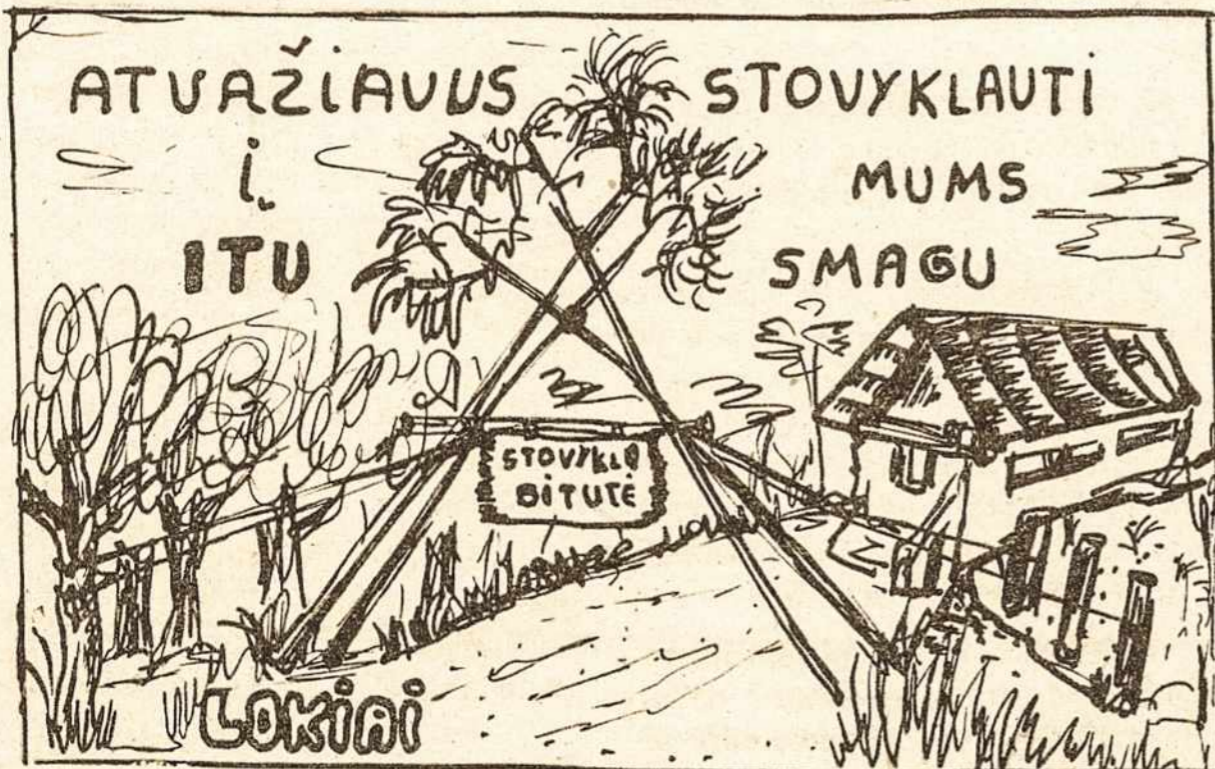 ATVAŽIAVUS STOVYKLAUTI
Į MUMS
ITU SMAGU
STOVYKLA
BITUTĖ
LOKIAI